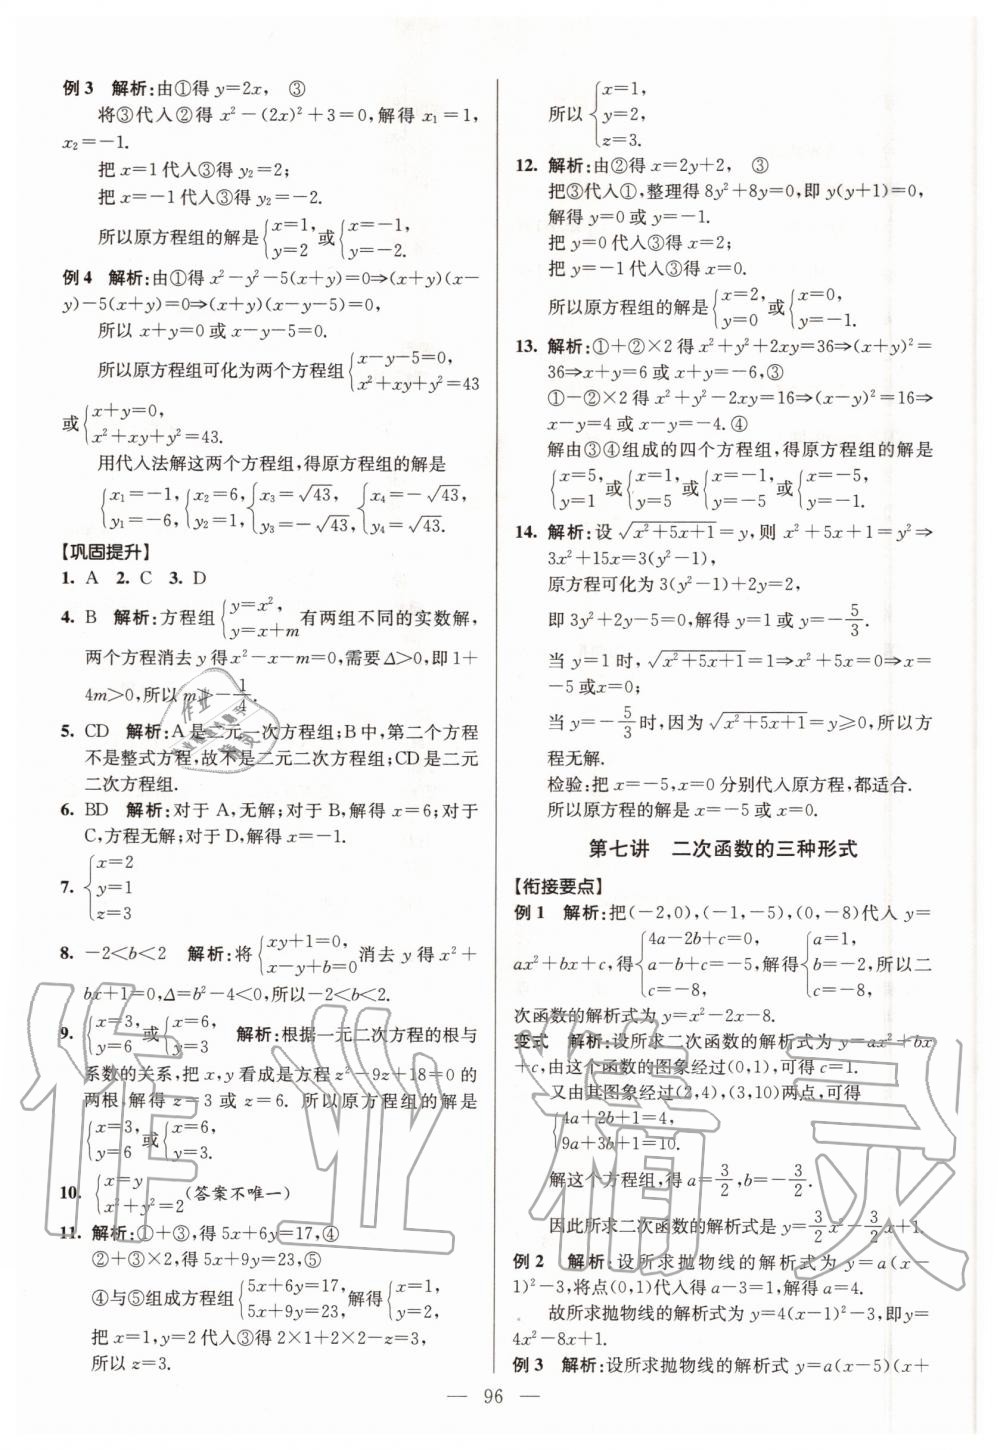 例3 解析:由①得 y=2x, ③
将③代入②得 x²-(2x)²+3=0,解得 x₁=1,
x₂=-1.
把 x=1代入③得 y₂=2;
把 x=-1代入③得 y₂=-2.
所以原方程组的解是{x=1, y=2 或{x=-1, y=-2.
例4 解析:由①得 x²-y²-5(x+y)=0⇒(x+y)(x-
y)-5(x+y)=0⇒(x+y)(x-y-5)=0,
所以 x+y=0 或 x-y-5=0.
所以原方程组可化为两个方程组{x-y-5=0, x²+xy+y²=43
或{x+y=0, x²+xy+y²=43.
用代入法解这两个方程组,得原方程组的解是
{x₁=-1, y₁=-6, {x₂=6, y₂=1, {x₃=√43, y₃=-√43, {x₄=-√43, y₄=√43.
【巩固提升】
1. A 2. C 3. D
4. B 解析:方程组{y=x², y=x+m 有两组不同的实数解,
两个方程消去 y得 x²-x-m=0,需要 Δ>0,即 1+
4m>0,所以 m>-1/4.
5. CD 解析:A是二元一次方程组;B中,第二个方程
不是整式方程,故不是二元二次方程组;CD是二元
二次方程组.
6. BD 解析:对于 A,无解;对于 B,解得 x=6;对于
C,方程无解;对于 D,解得 x=-1.
7. {x=2 y=1 z=3
8. -2<b<2 解析:将{xy+1=0, x-y+b=0 消去 y 得 x²+
bx+1=0,Δ=b²-4<0,所以-2<b<2.
9. {x=3, y=6 或{x=6, y=3 解析:根据一元二次方程的根与
系数的关系,把 x,y看成是方程 z²-9z+18=0 的
两根,解得 z=3 或 z=6. 所以原方程组的解是
{x=3, y=6 或{x=6, y=3.
10. {x=y x²+y²=2 (答案不唯一)
11. 解析:①+③,得 5x+6y=17,④
②+③×2,得 5x+9y=23,⑤
④与⑤组成方程组{5x+6y=17, 5x+9y=23, 解得{x=1, y=2,
把 x=1,y=2代入③得 2×1+2×2-z=3,
所以 z=3.
所以{x=1, y=2, z=3.
12. 解析:由②得 x=2y+2, ③
把③代入①,整理得 8y²+8y=0,即 y(y+1)=0,
解得 y=0 或 y=-1.
把 y=0 代入③得 x=2;
把 y=-1 代入③得 x=0.
所以原方程组的解是{x=2, y=0 或{x=0, y=-1.
13. 解析:①+②×2 得 x²+y²+2xy=36⇒(x+y)²=
36⇒x+y=6 或 x+y=-6,③
①-②×2 得 x²+y²-2xy=16⇒(x-y)²=16⇒
x-y=4 或 x-y=-4.④
解由③④组成的四个方程组,得原方程组的解是
{x=5, y=1 或{x=1, y=5 或{x=-1, y=-5 或{x=-5, y=-1.
14. 解析:设 √x²+5x+1=y,则 x²+5x+1=y²⇒
3x²+15x=3(y²-1),
原方程可化为 3(y²-1)+2y=2,
即 3y²+2y-5=0,解得 y=1 或 y=-5/3.
当 y=1 时,√x²+5x+1=1⇒x²+5x=0⇒x=
-5 或x=0;
当 y=-5/3时,因为 √x²+5x+1=y≥0,所以方
程无解.
检验:把 x=-5,x=0 分别代入原方程,都适合.
所以原方程的解是 x=-5 或 x=0.
第七讲 二次函数的三种形式
【衔接要点】
例1 解析:把(-2,0),(-1,-5),(0,-8)代入 y=
ax²+bx+c,得{4a-2b+c=0, a-b+c=-5, c=-8, 解得{a=1, b=-2, c=-8, 所以二
次函数的解析式为 y=x²-2x-8.
变式 解析:设所求二次函数的解析式为 y=ax²+bx
+c,由这个函数的图象经过(0,1),可得 c=1.
又由其图象经过(2,4),(3,10)两点,可得
{4a+2b+1=4, 9a+3b+1=10.
解这个方程组,得 a=3/2,b=-3/2.
因此所求二次函数的解析式是 y=3/2x²-3/2x+1.
例2 解析:设所求抛物线的解析式为 y=a(x-
1)²-3,将点(0,1)代入得 a-3=1,解得 a=4.
故所求抛物线的解析式为 y=4(x-1)²-3,即y=
4x²-8x+1.
例3 解析:设所求抛物线的解析式 y=a(x-5)(x+
— 96 —
作业精灵